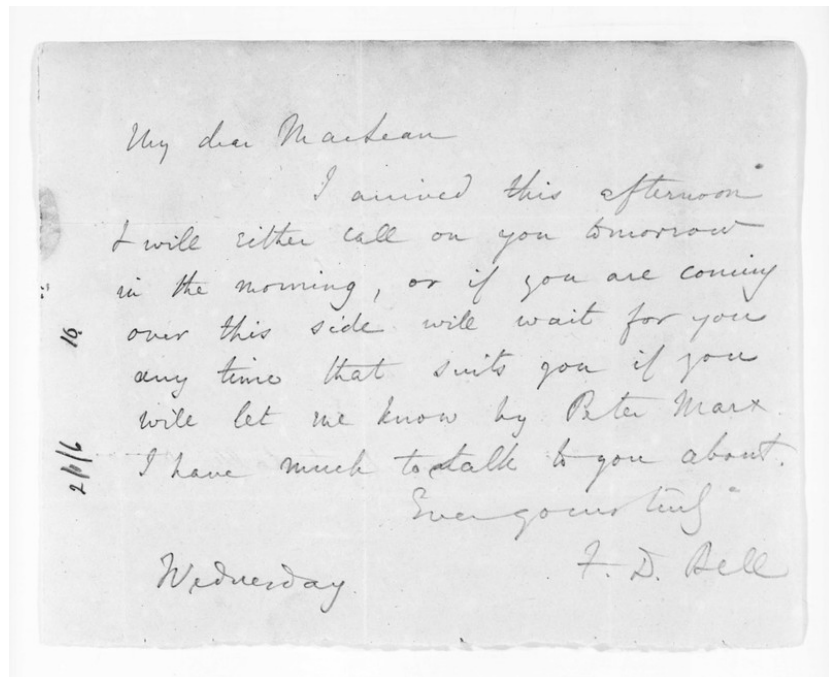 My dear MacLean
I arrived this afternoon
& will either call on you tomorrow
in the morning, or if you are coming
over this side will wait for you
any time that suits you if you
will let me know by Peter Marx
I have much to talk to you about.
Ever yours truly
F. D. Bell
Wednesday
16
2/1/6